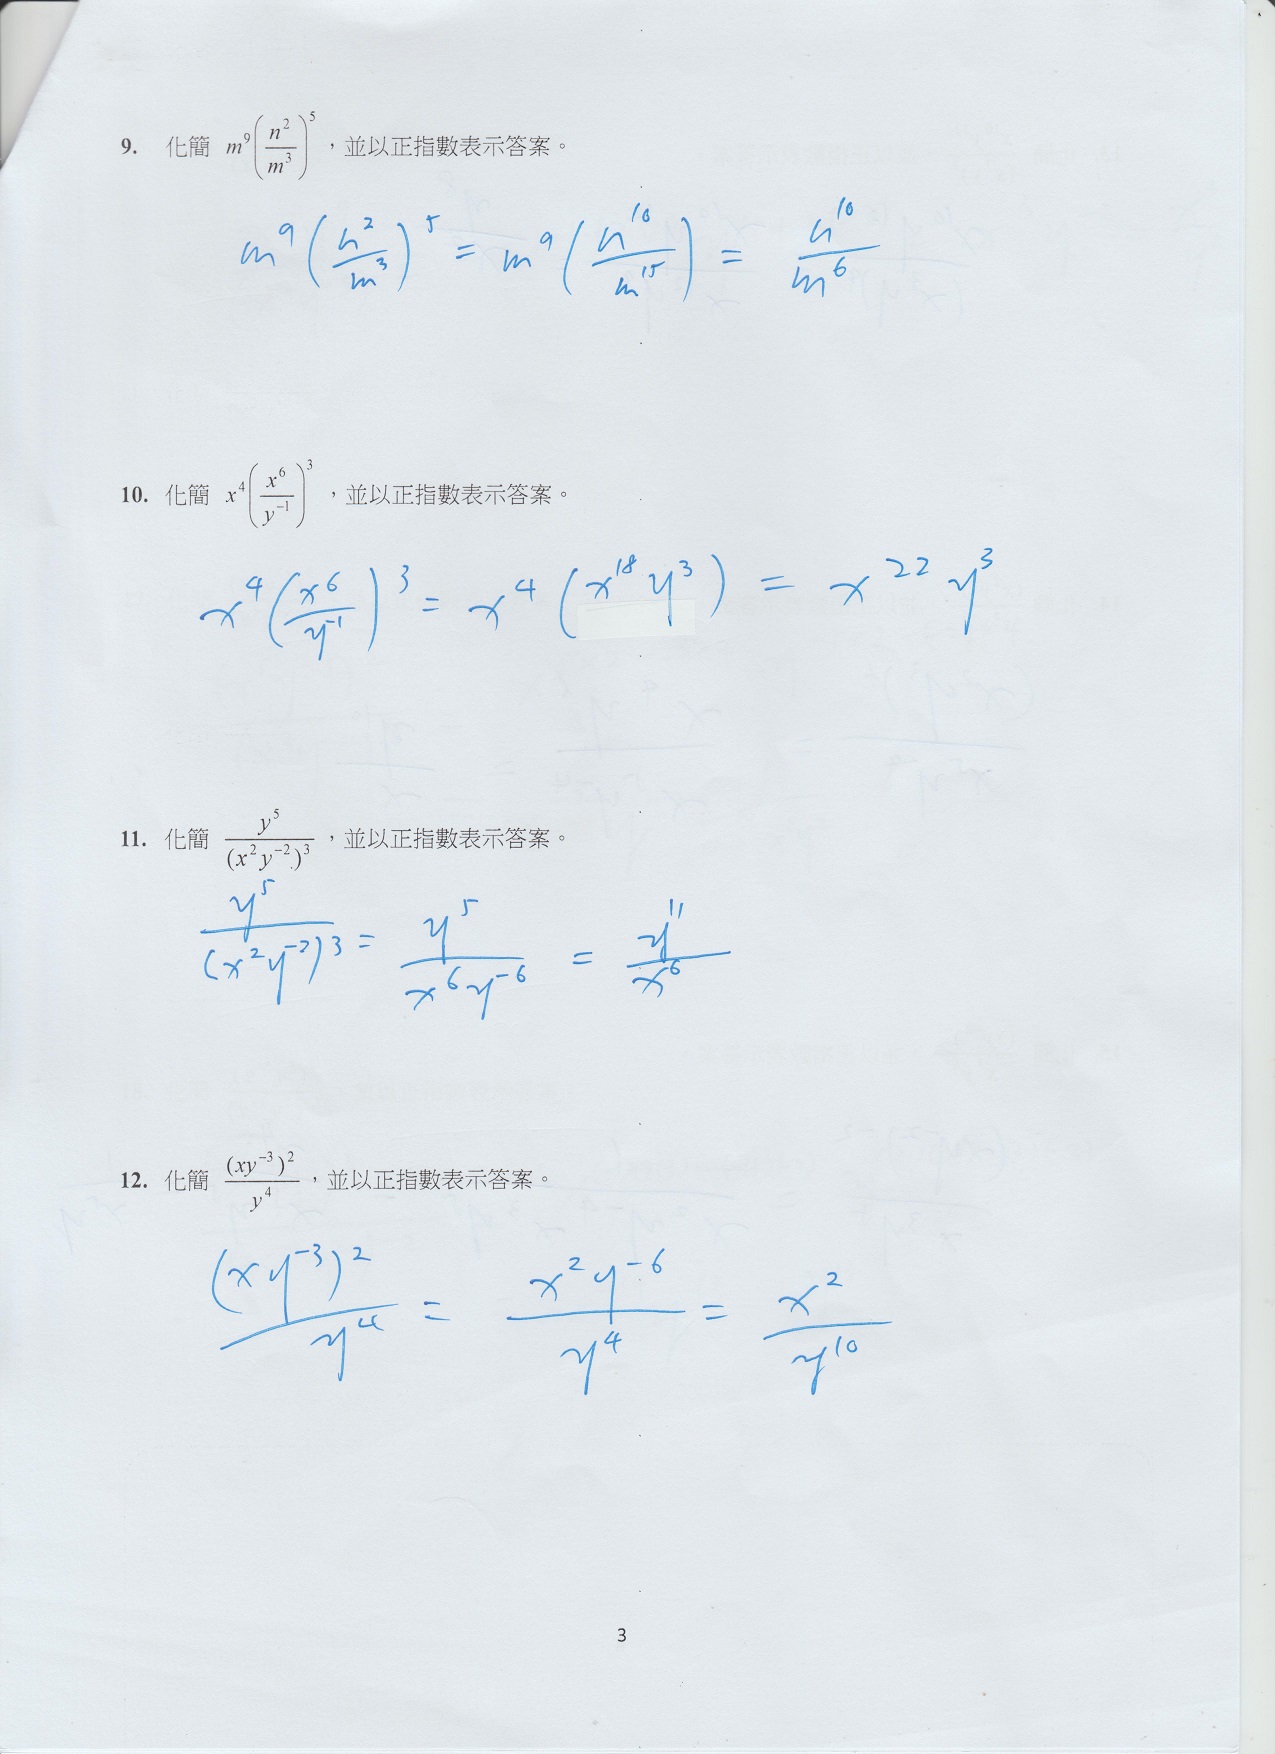 9. 化簡 m⁹(n²/m³)⁵,並以正指數表示答案。
m⁹(n²/m³)⁵ = m⁹(n¹⁰/m¹⁵) = n¹⁰/m⁶
10. 化簡 x⁴(x⁶/y⁻¹)³,並以正指數表示答案。
x⁴(x⁶/y⁻¹)³ = x⁴(x¹⁸y³) = x²²y³
11. 化簡 y⁵/(x²y⁻²)³,並以正指數表示答案。
y⁵/(x²y⁻²)³ = y⁵/x⁶y⁻⁶ = y¹¹/x⁶
12. 化簡 (xy⁻³)²/y⁴,並以正指數表示答案。
(xy⁻³)²/y⁴ = x²y⁻⁶/y⁴ = x²/y¹⁰
3